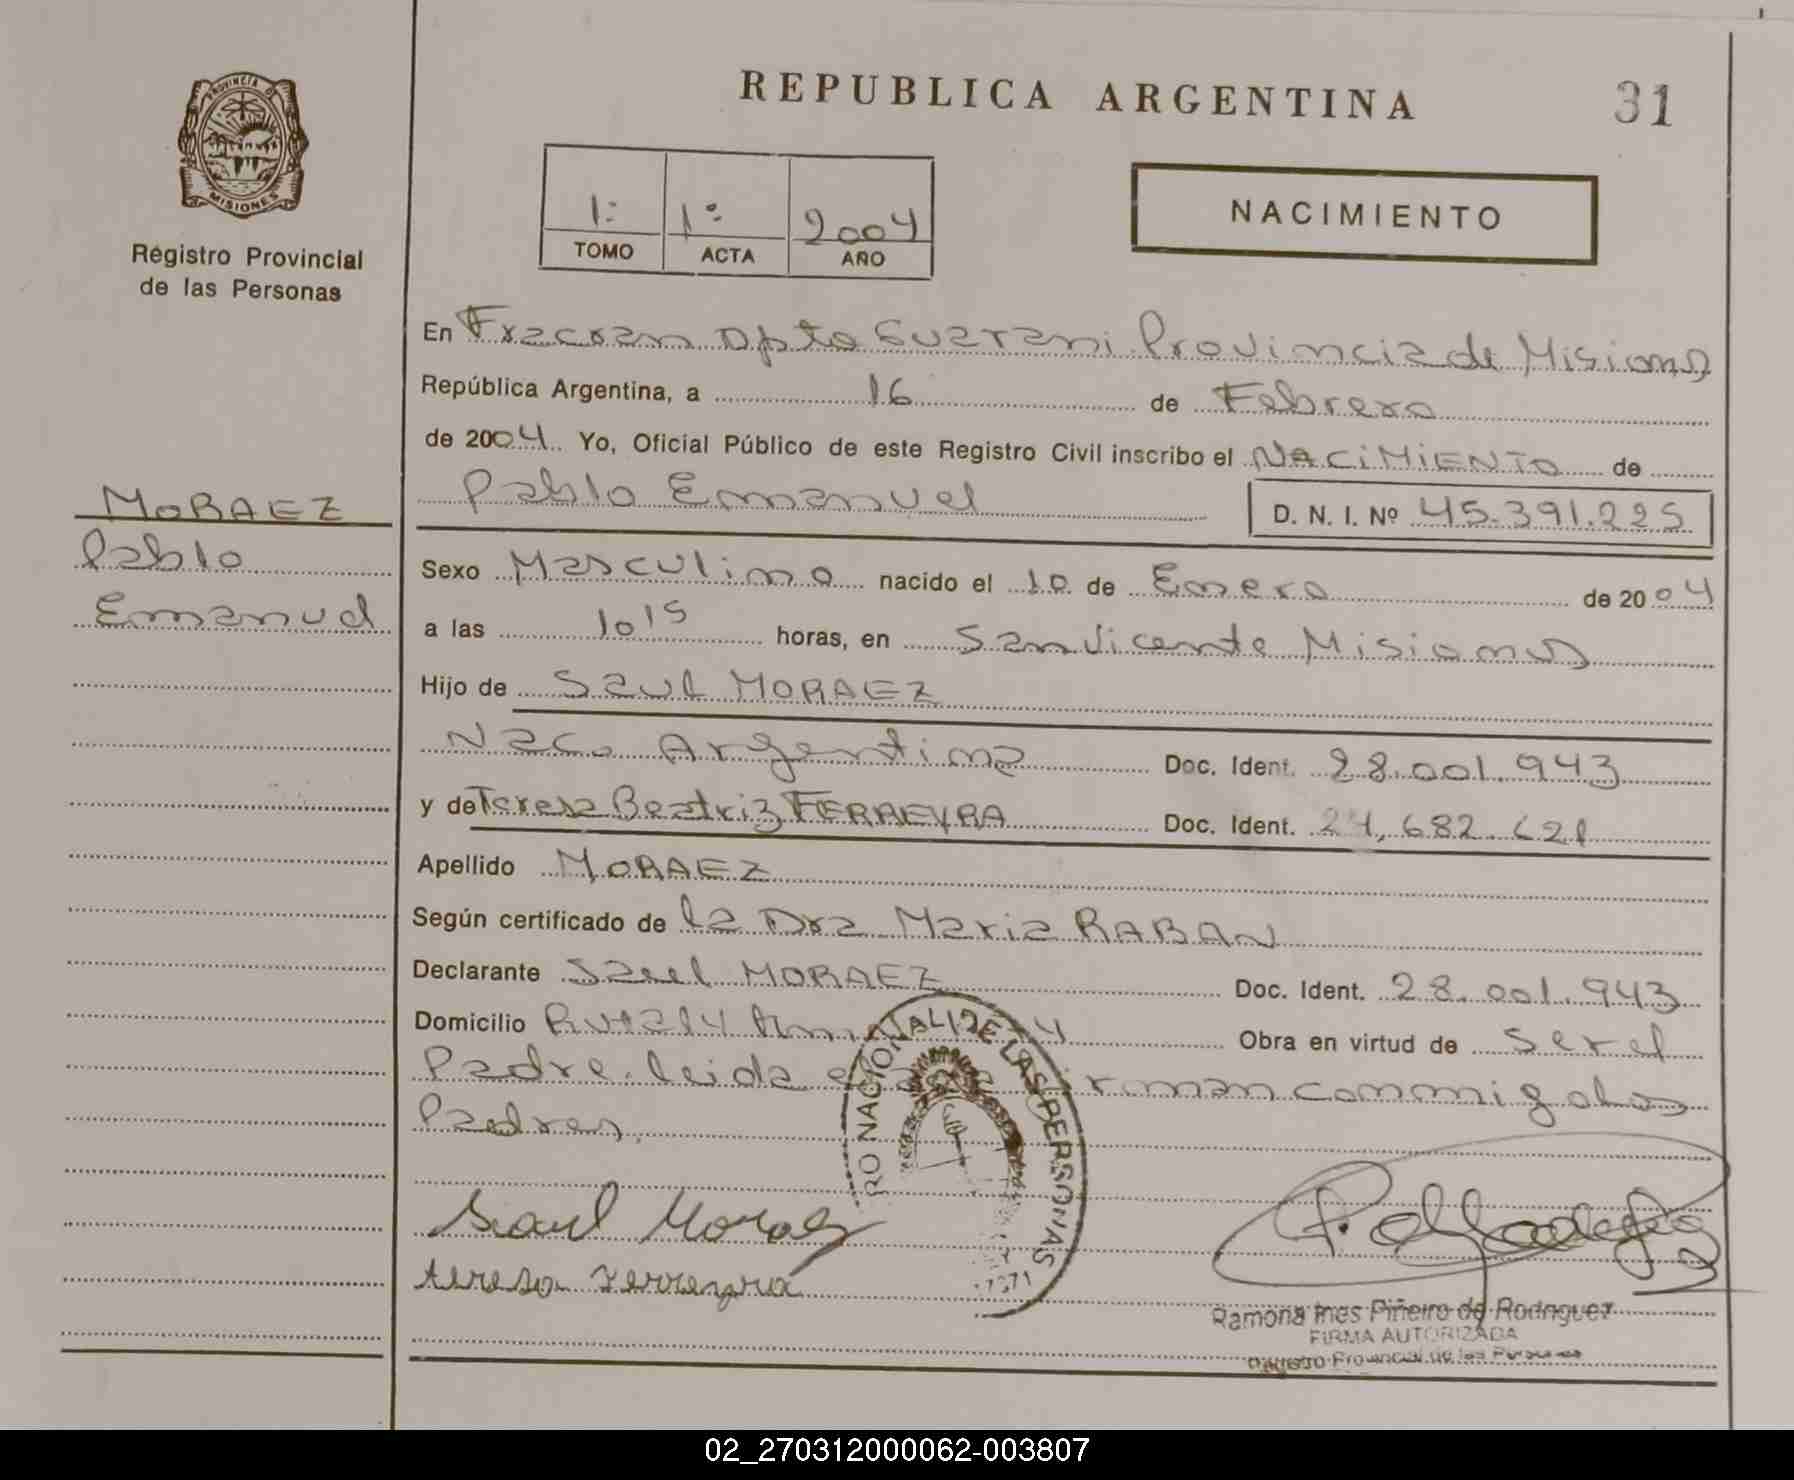 REPUBLICA ARGENTINA
31
PROVINCIA DE
MISIONES
Registro Provincial
de las Personas
1: 1º 2004
TOMO ACTA AÑO
NACIMIENTO
En Fracran Dpto Guarani Provincia de Misiones
República Argentina, a 16 de Febrero
de 2004 Yo, Oficial Público de este Registro Civil inscribo el NACIMIENTO de
Pablo Emanuel D. N. I. Nº 45.391.225
MORAEZ
Pablo
Emanuel
Sexo Masculino nacido el 10 de Enero de 2004
a las 10 15 horas, en San Vicente Misiones
Hijo de Saul MORAEZ
Nac. Argentina Doc. Ident. 28.001.943
y de Teresa Beatriz FERREYRA Doc. Ident.
Apellido MORAEZ
Según certificado de la Dra Maria RABAN
Declarante Saul MORAEZ Doc. Ident. 28.001.943
Domicilio Obra en virtud de Ser el
Padre. leida el firman conmigo los
Padres.
RO NACIONAL DE LAS PERSONAS
Saul Moraez
teresa Ferreyra
Ramona Ines Piñeiro de Rodriguez
FIRMA AUTORIZADA
Registro Provincial de las Personas
02_270312000062-003807